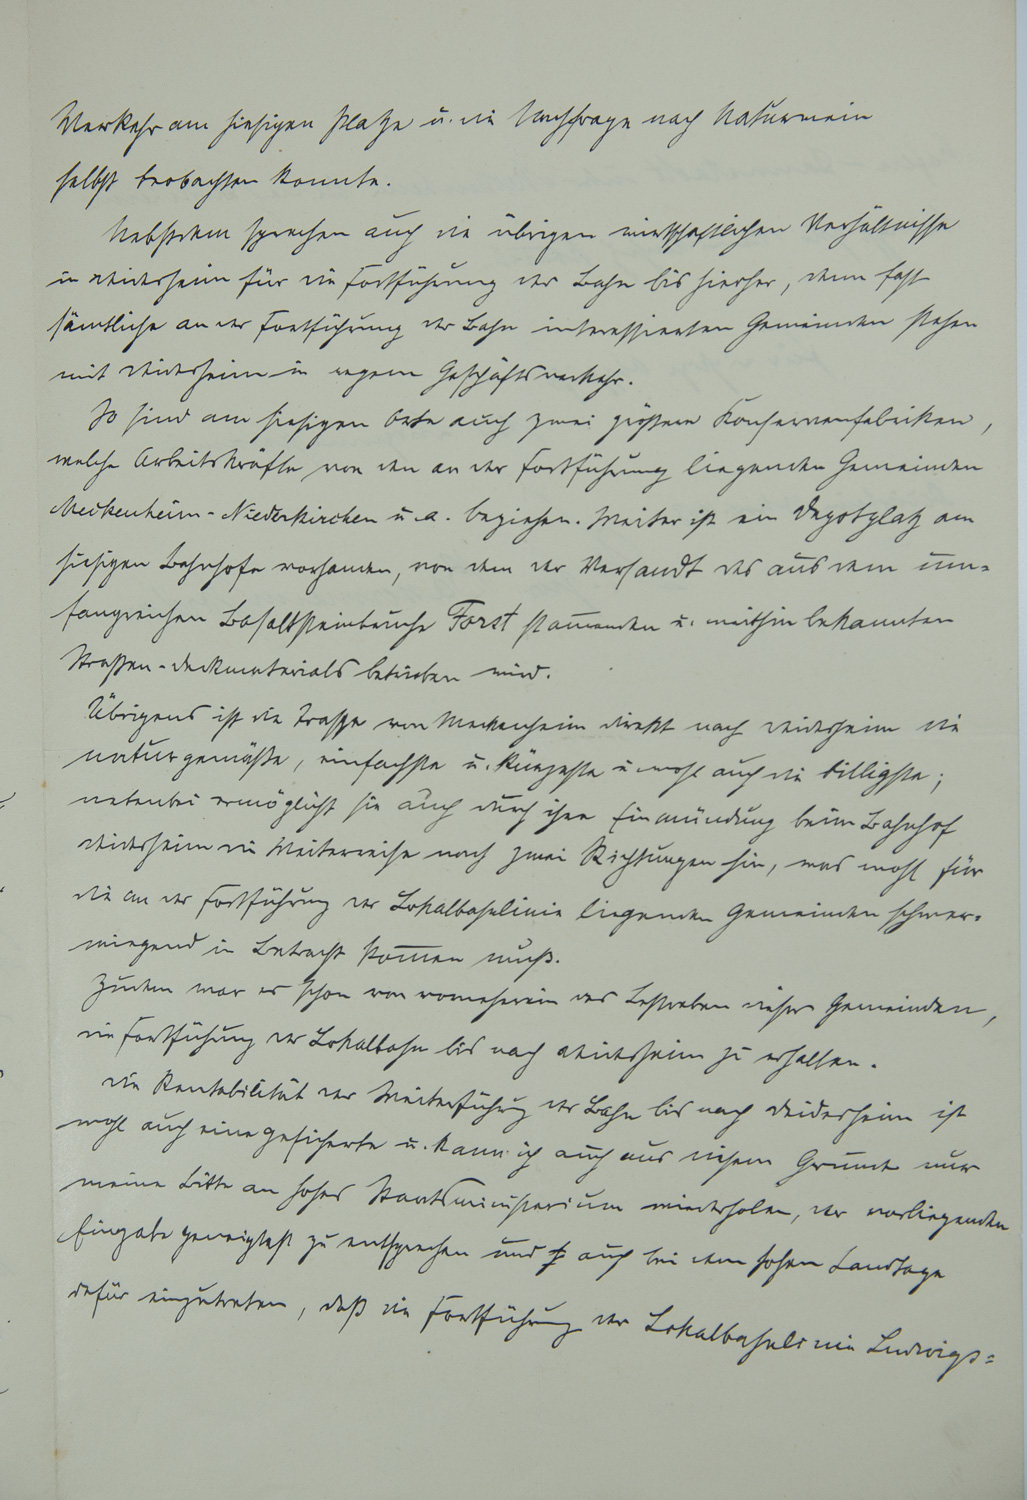 Verkehr am hiesigen Platze u. die Nachfrage nach Naturwein
selbst beobachten konnte.
Nebstdem sprechen auch die übrigen wirtschaftlichen Verhältnisse
in Deidesheim für die Fortführung der Bahn bis hierher, denn fast
sämtliche an der Fortführung der Bahn interessierten Gemeinden stehen
mit Deidesheim in regem Geschäftsverkehr.
So sind am hiesigen Orte auch zwei größere Konservenfabriken,
welche Arbeitskräfte von den an der Fortführung liegenden Gemeinden
Meckenheim-Niederkirchen u. a. beziehen. Weiter ist ein Depotplatz am
hiesigen Bahnhofe vorhanden, von dem der Versandt des aus dem um-
fangreichen Basaltsteinbruche Forst stam̅enden u. weithin bekannten
Strassen-deckmaterials betrieben wird.
Übrigens ist die Trasse von Meckenheim direkt nach Deidesheim die
naturgemäße, einfachste u. kürzeste u. wohl auch die billigste;
nebenbei ermöglicht sie auch durch ihre Einmündung beim Bahnhof
Deidesheim die Weiterreise nach zwei Richtungen hin, was wohl für
die an der Fortführung der Lokalbahnlinie liegenden Gemeinden schwer-
wiegend in Betracht kom̅en muß.
Zudem war es schon von vorneherein das Bestreben dieser Gemeinden,
die Fortführung der Lokalbahn bis nach Deidesheim zu erhalten.
Die Rentabilität der Weiterführung der Bahn bis nach Deidesheim ist
wohl auch eine gesicherte u. kann ich auch aus diesem Grunde nur
meine Bitte an hohes Staatsministerium wiederholen, der vorliegenden
Eingabe geneigtest zu entsprechen und auch bei dem hohen Landtage
dafür einzutreten, daß die Fortführung der Lokalbahnlinie Ludwigs=